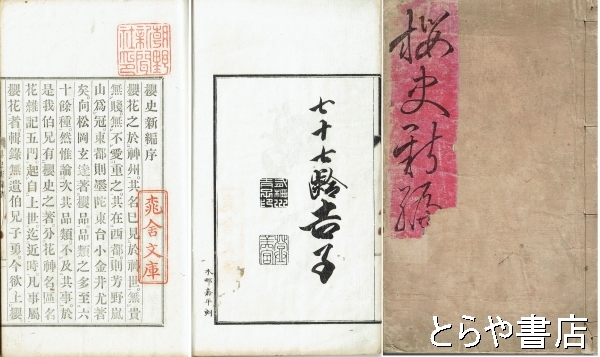 櫻史新編
七十七齡杏子
木邨嘉平刻
潮野
新聞
社印
桃舍文庫
櫻史新編序
櫻花之於神州其名已見於神世無貴
無賤無不愛重之其在西都則芳野嵐
山爲冠東都則墨陀東台小金井尤著
矣向松岡玄達著櫻品品類之多至六
十餘種然惟論次其品類不及其事於
是我伯兄有櫻史之著分花神名區名
花雜記五門起自上世迄近時凡事屬
櫻花者輯錄無遺伯兄子勇今欲上櫻
とらや書店